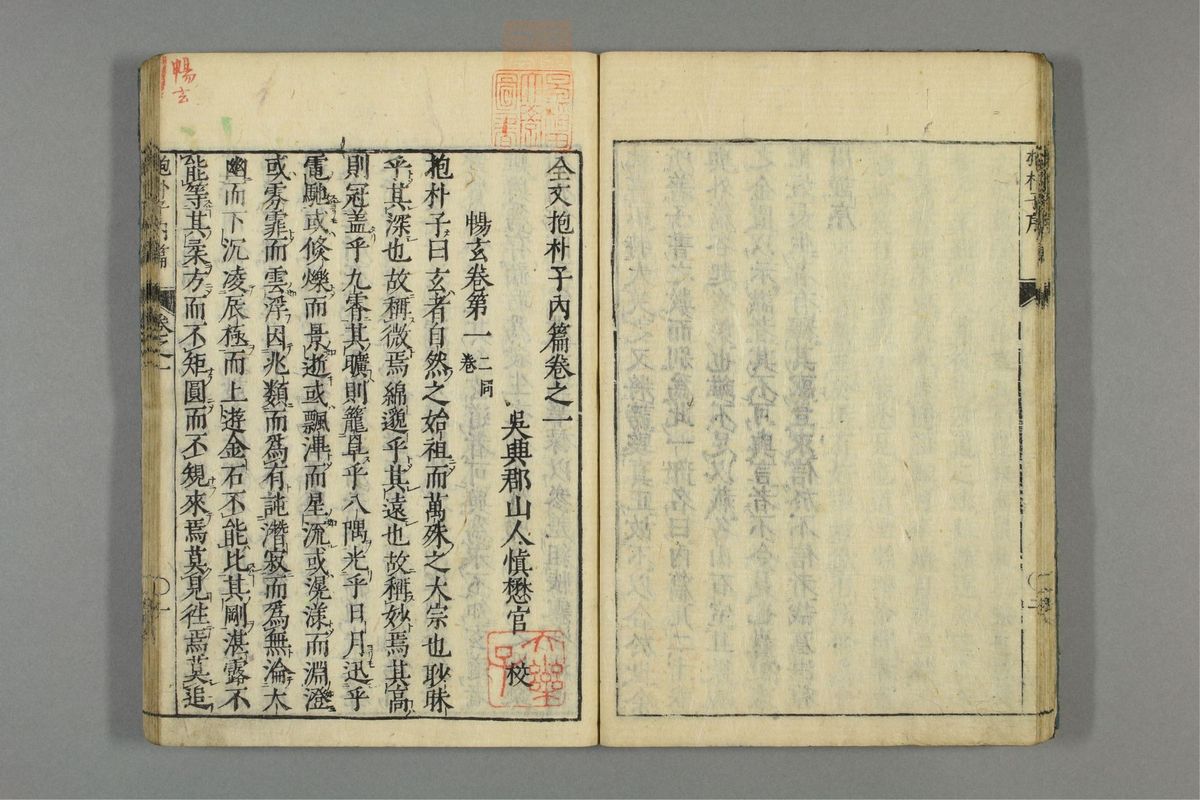 抱朴子序
全文抱朴子內篇卷之一
暢玄卷第一 二同卷
吳興郡山人慎懋官校
抱朴子曰玄者自然之始祖而萬殊之大宗也眇眛
乎其深也故稱微焉綿邈乎其遠也故稱妙焉其高
則冠盖乎九霄其曠則籠罩乎八隅光乎日月迅乎
電馳或倏爍而景逝或飄滭而星流或滉漾而淵澄
或雰霏而雲浮因兆類而爲有託潛寂而爲無淪大
幽而下沉凌辰極而上遊金石不能比其剛湛露不
能等其柔方而不矩圓而不規來焉莫見徃焉莫追
抱朴子內篇 卷之一 〇一
暢玄